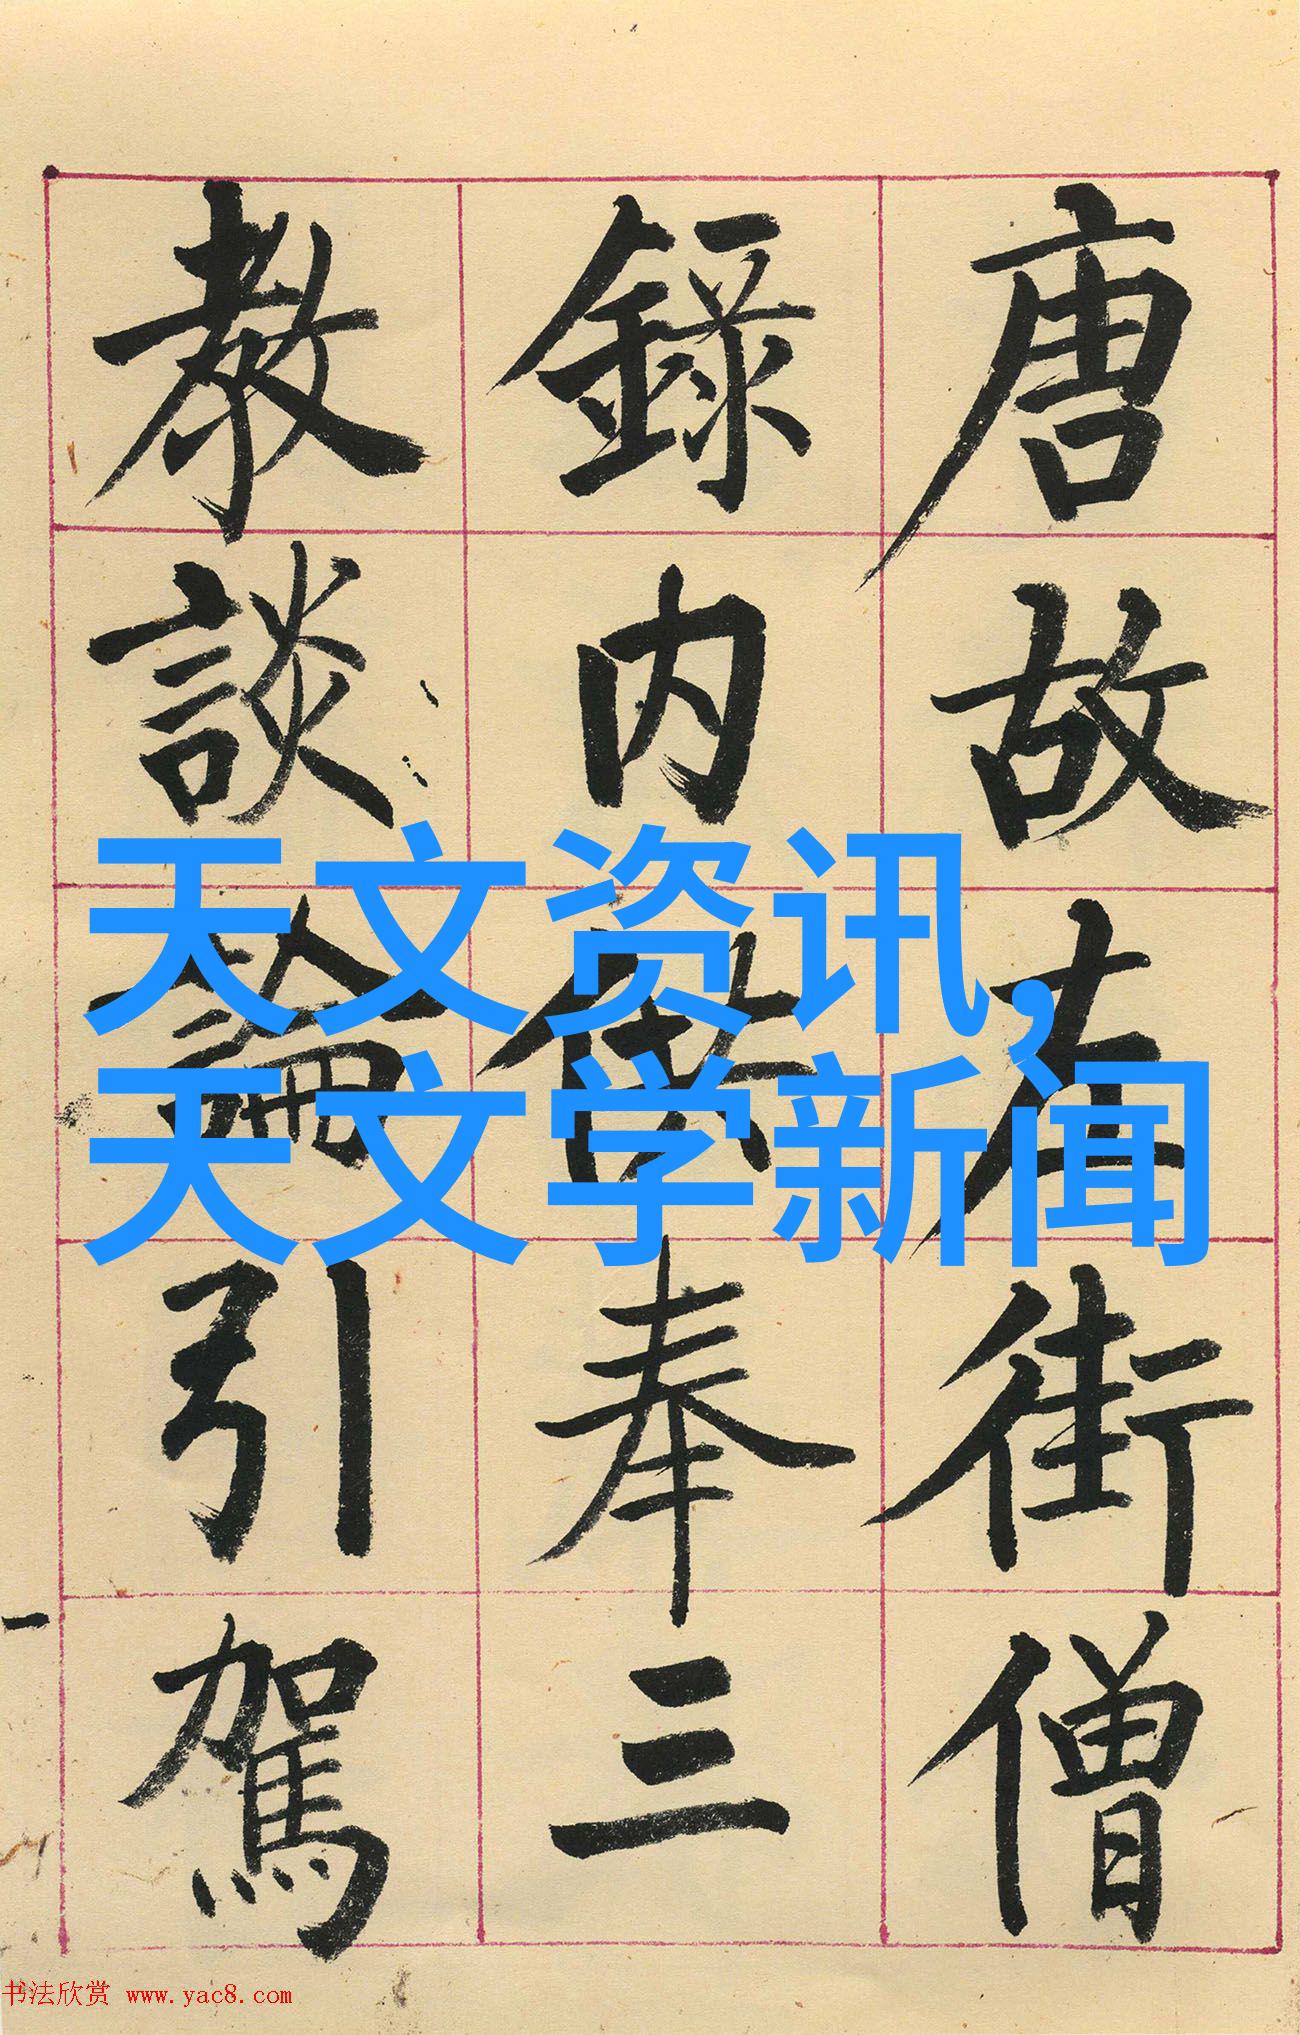 唐故左街僧
錄内供奉三
教談論引駕
天文资讯,
天文学新闻
书法欣赏 www.yac8.com